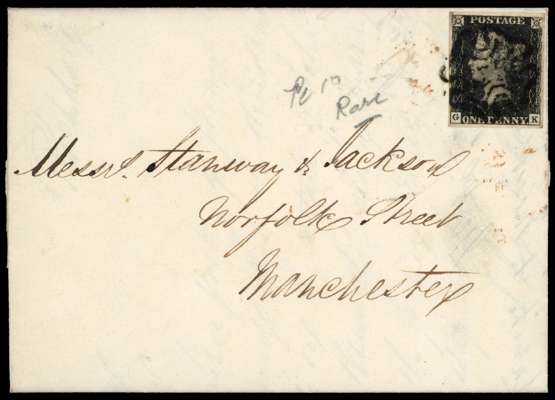 POSTAGE
G ONE PENNY K
Rare
Messrs. Stanway & Jackson
Norfolk Street
Manchester